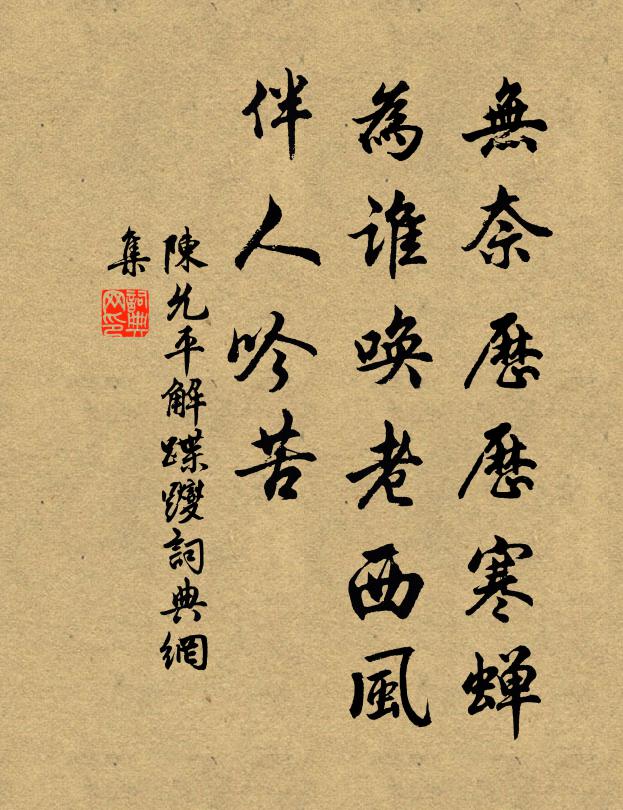 無奈歷歷寒蟬
為誰喚老西風
伴人吟苦
陳允平解蹀躞詞典網
集
詞典網印